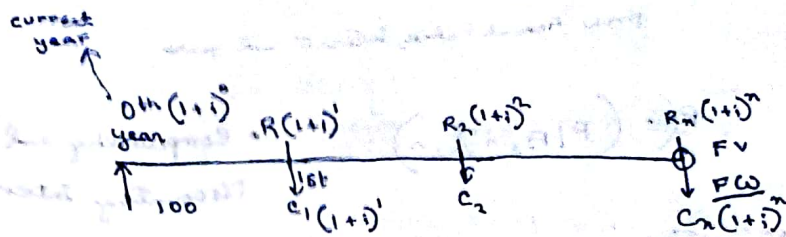 current
year
0th (1+i)^0
year
R(1+i)^1
R2(1+i)^2
Rn(1+i)^n
FV
FW
100
1st
C1(1+i)^1
C2
Cn(1+i)^n